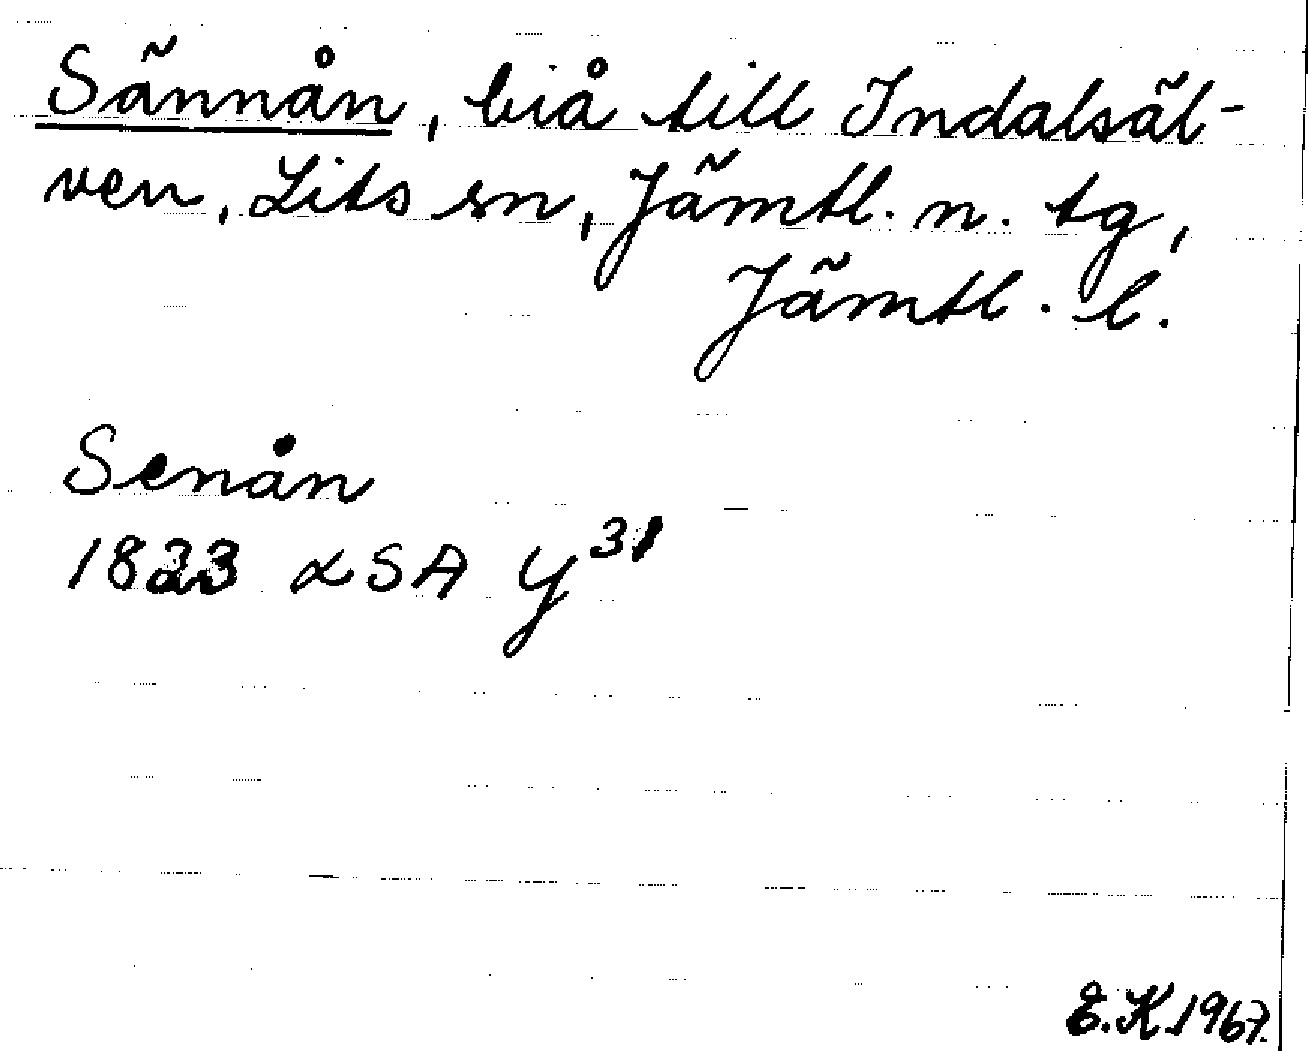 Sännån, biå till Indalsäl-
ven, Lits sn, Jämtl. n. tg,
Jämtl. l.
Senån
1823 LSA Y³¹
E.K 1967.